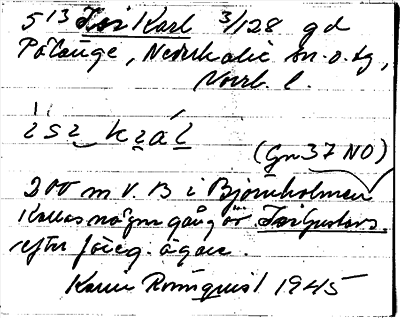 5¹³ Isi Karl 3/128 gd
Pålänge, Nederkalix sn. o. tg,
Norrb. l.
ìsı kzál
(Gn 37 NO)
200 m V. B i Björnholmen
Kallas någon gång ör Isi Gustavs
efter föreg. ägare.
Karin Rönnquist 1945